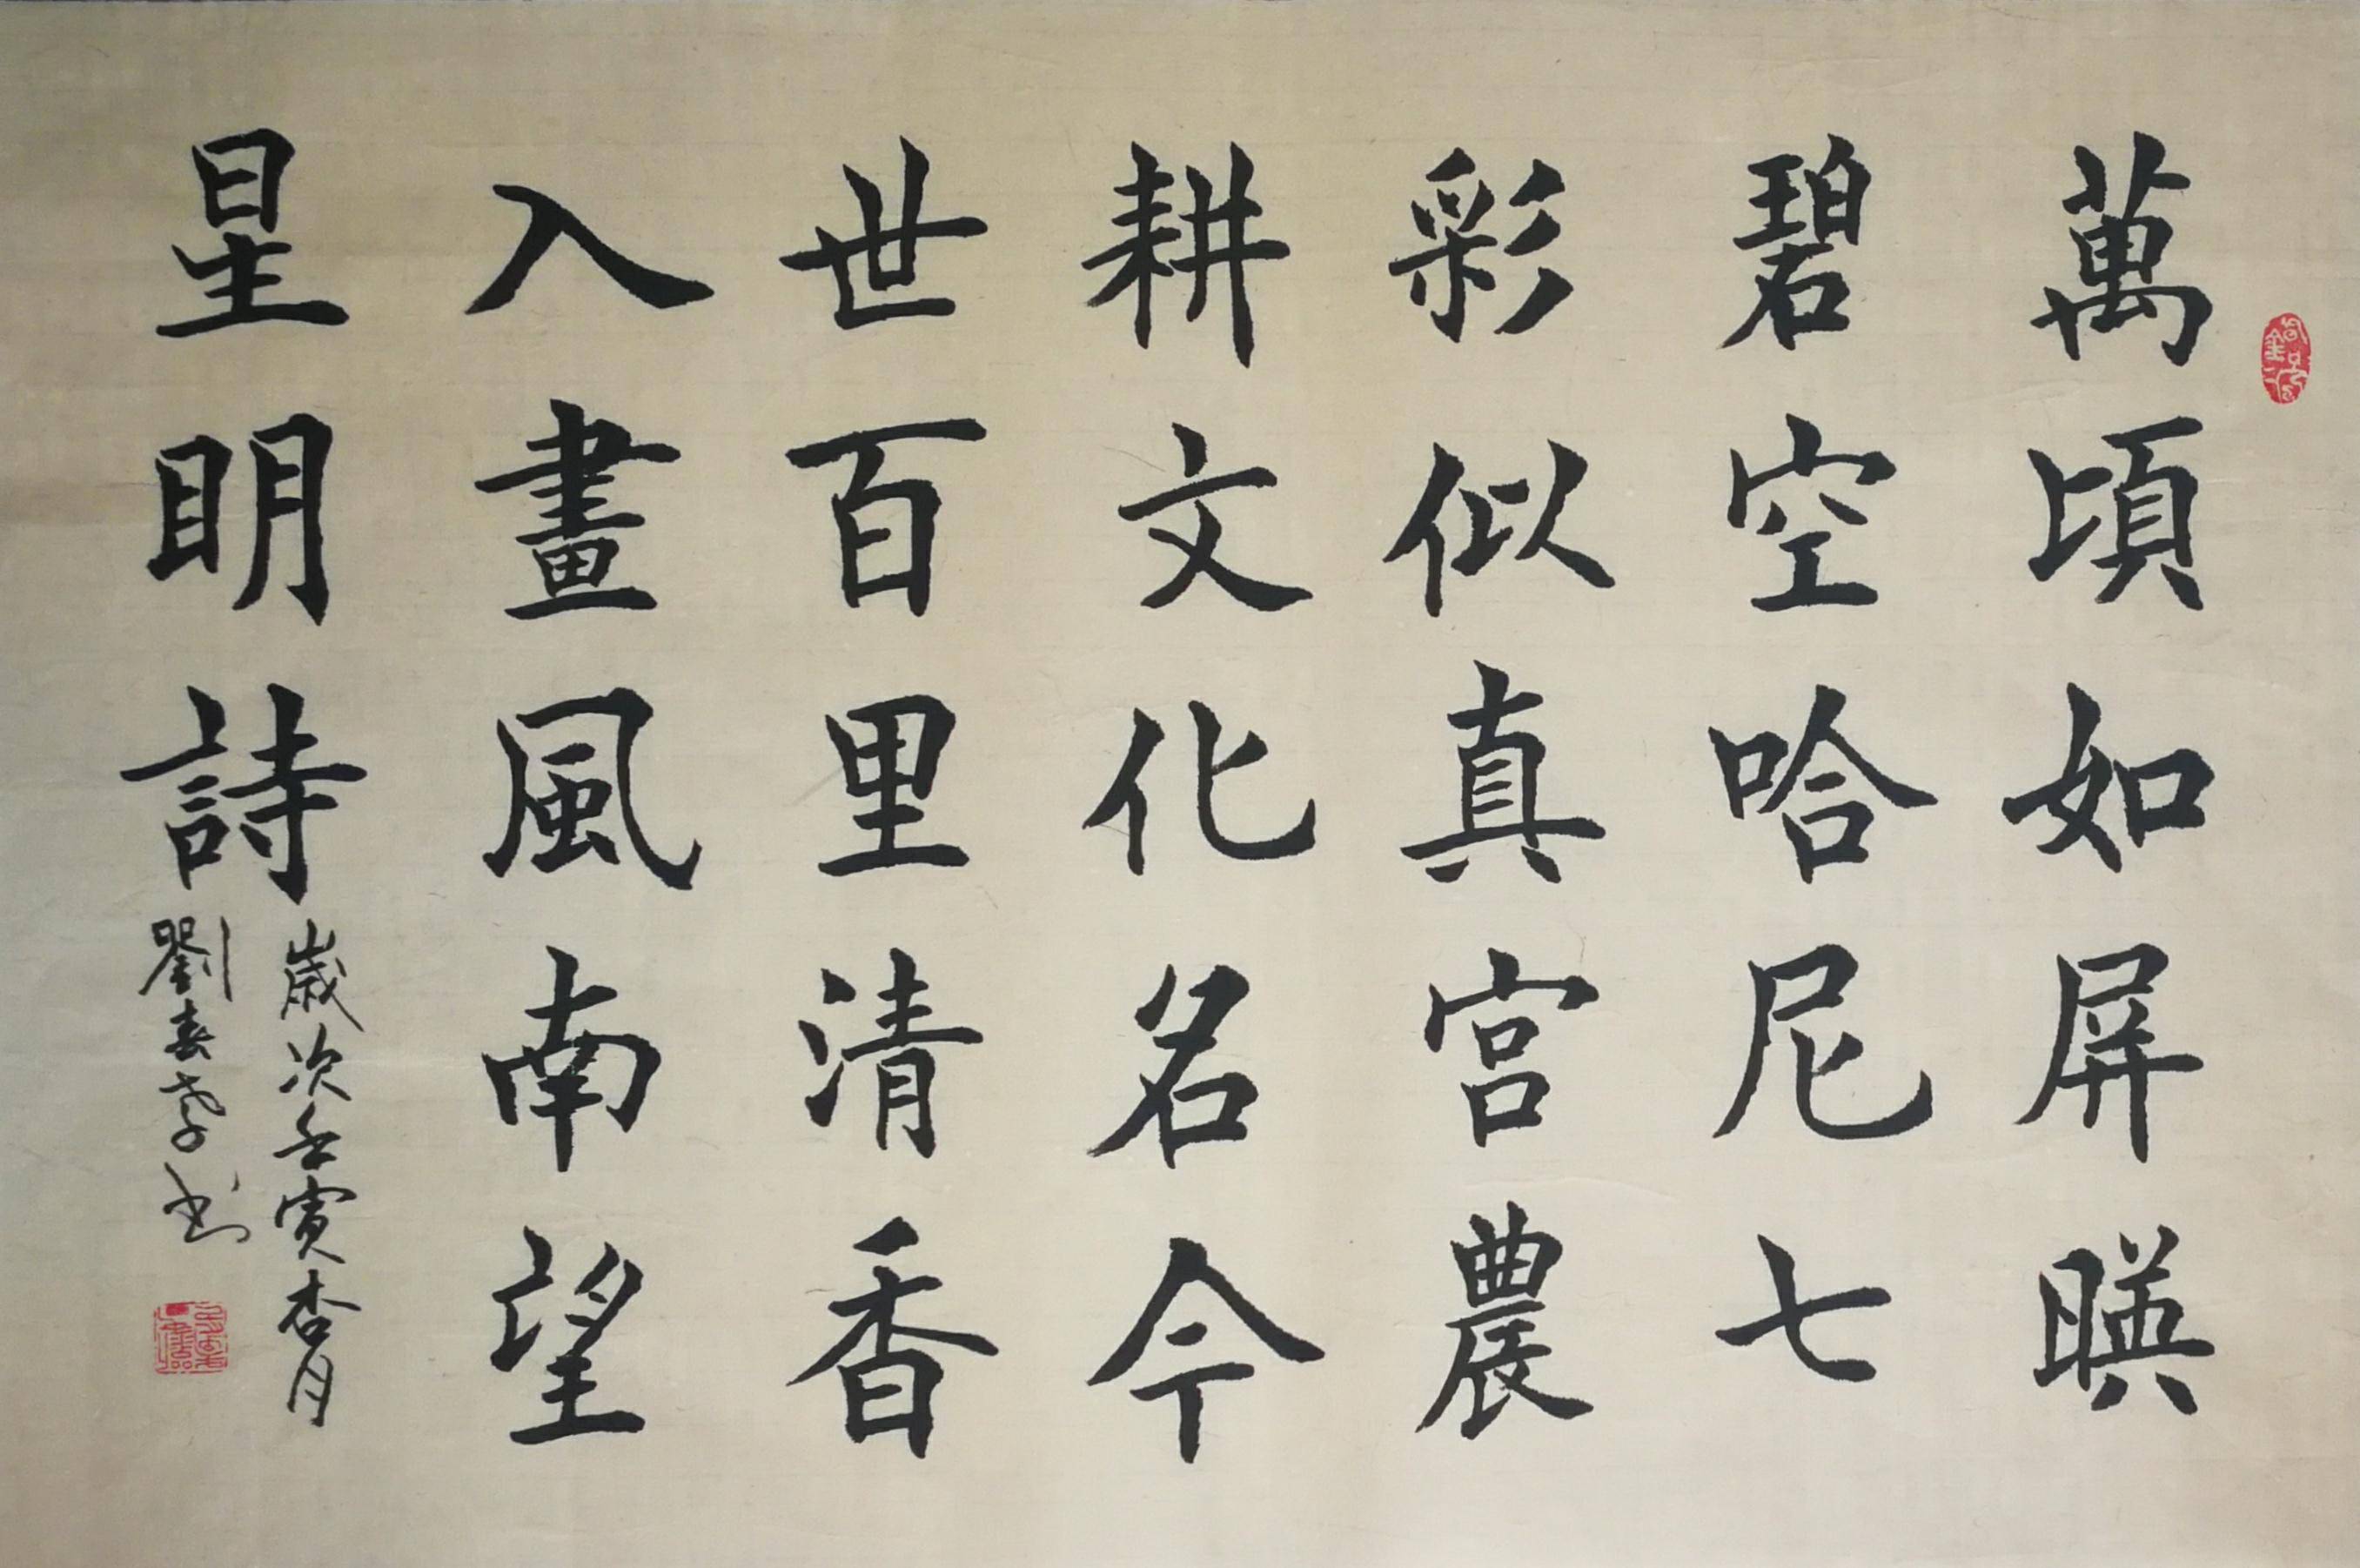 萬頃如屏暎
碧空哈尼七
彩似真宮農
耕文化名今
世百里清香
入畫風南望
星明詩
歲次壬寅杏月
劉春孝书